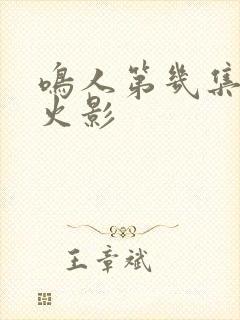 鳴人第幾集
火影
王章斌